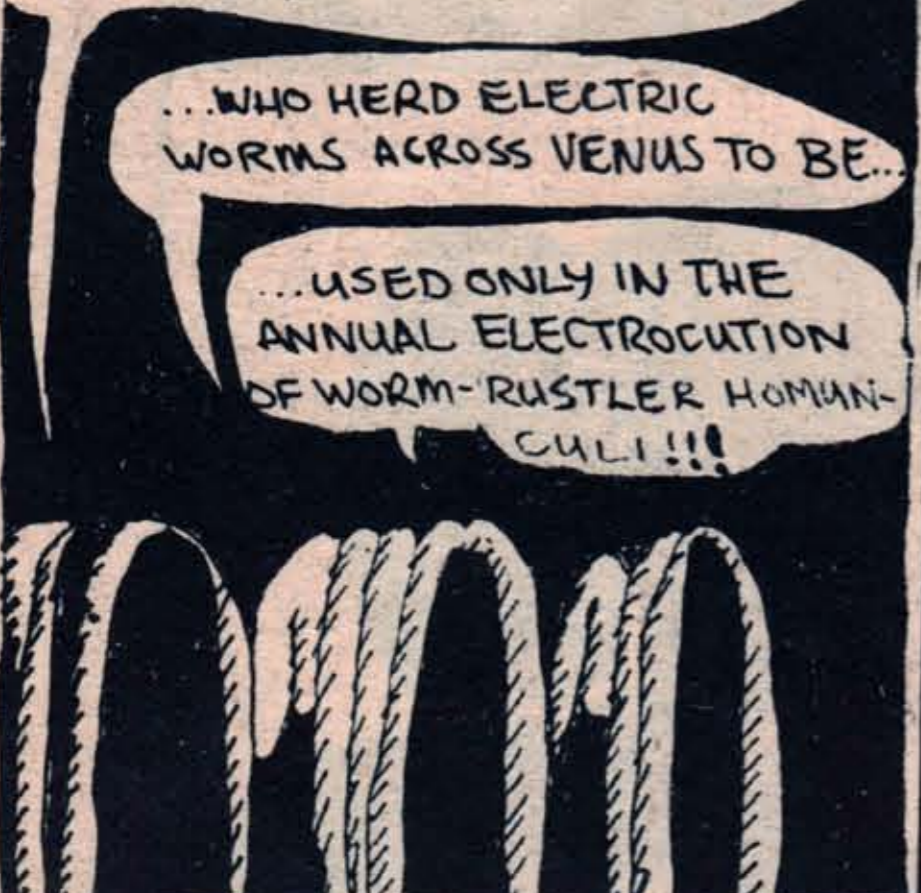 ...WHO HERD ELECTRIC
WORMS ACROSS VENUS TO BE...
...USED ONLY IN THE
ANNUAL ELECTROCUTION
OF WORM-RUSTLER HOMUN-
CULI!!!